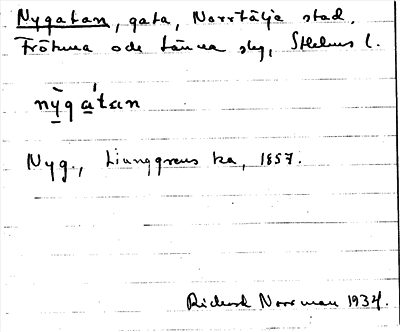 Nygatan, gata, Norrtälje stad,
Frötuna och Länna skg, Sthlms l.
nỳgátan
Nyg., Ljunggrens ka, 1857.
Rickard Norrman 1934.